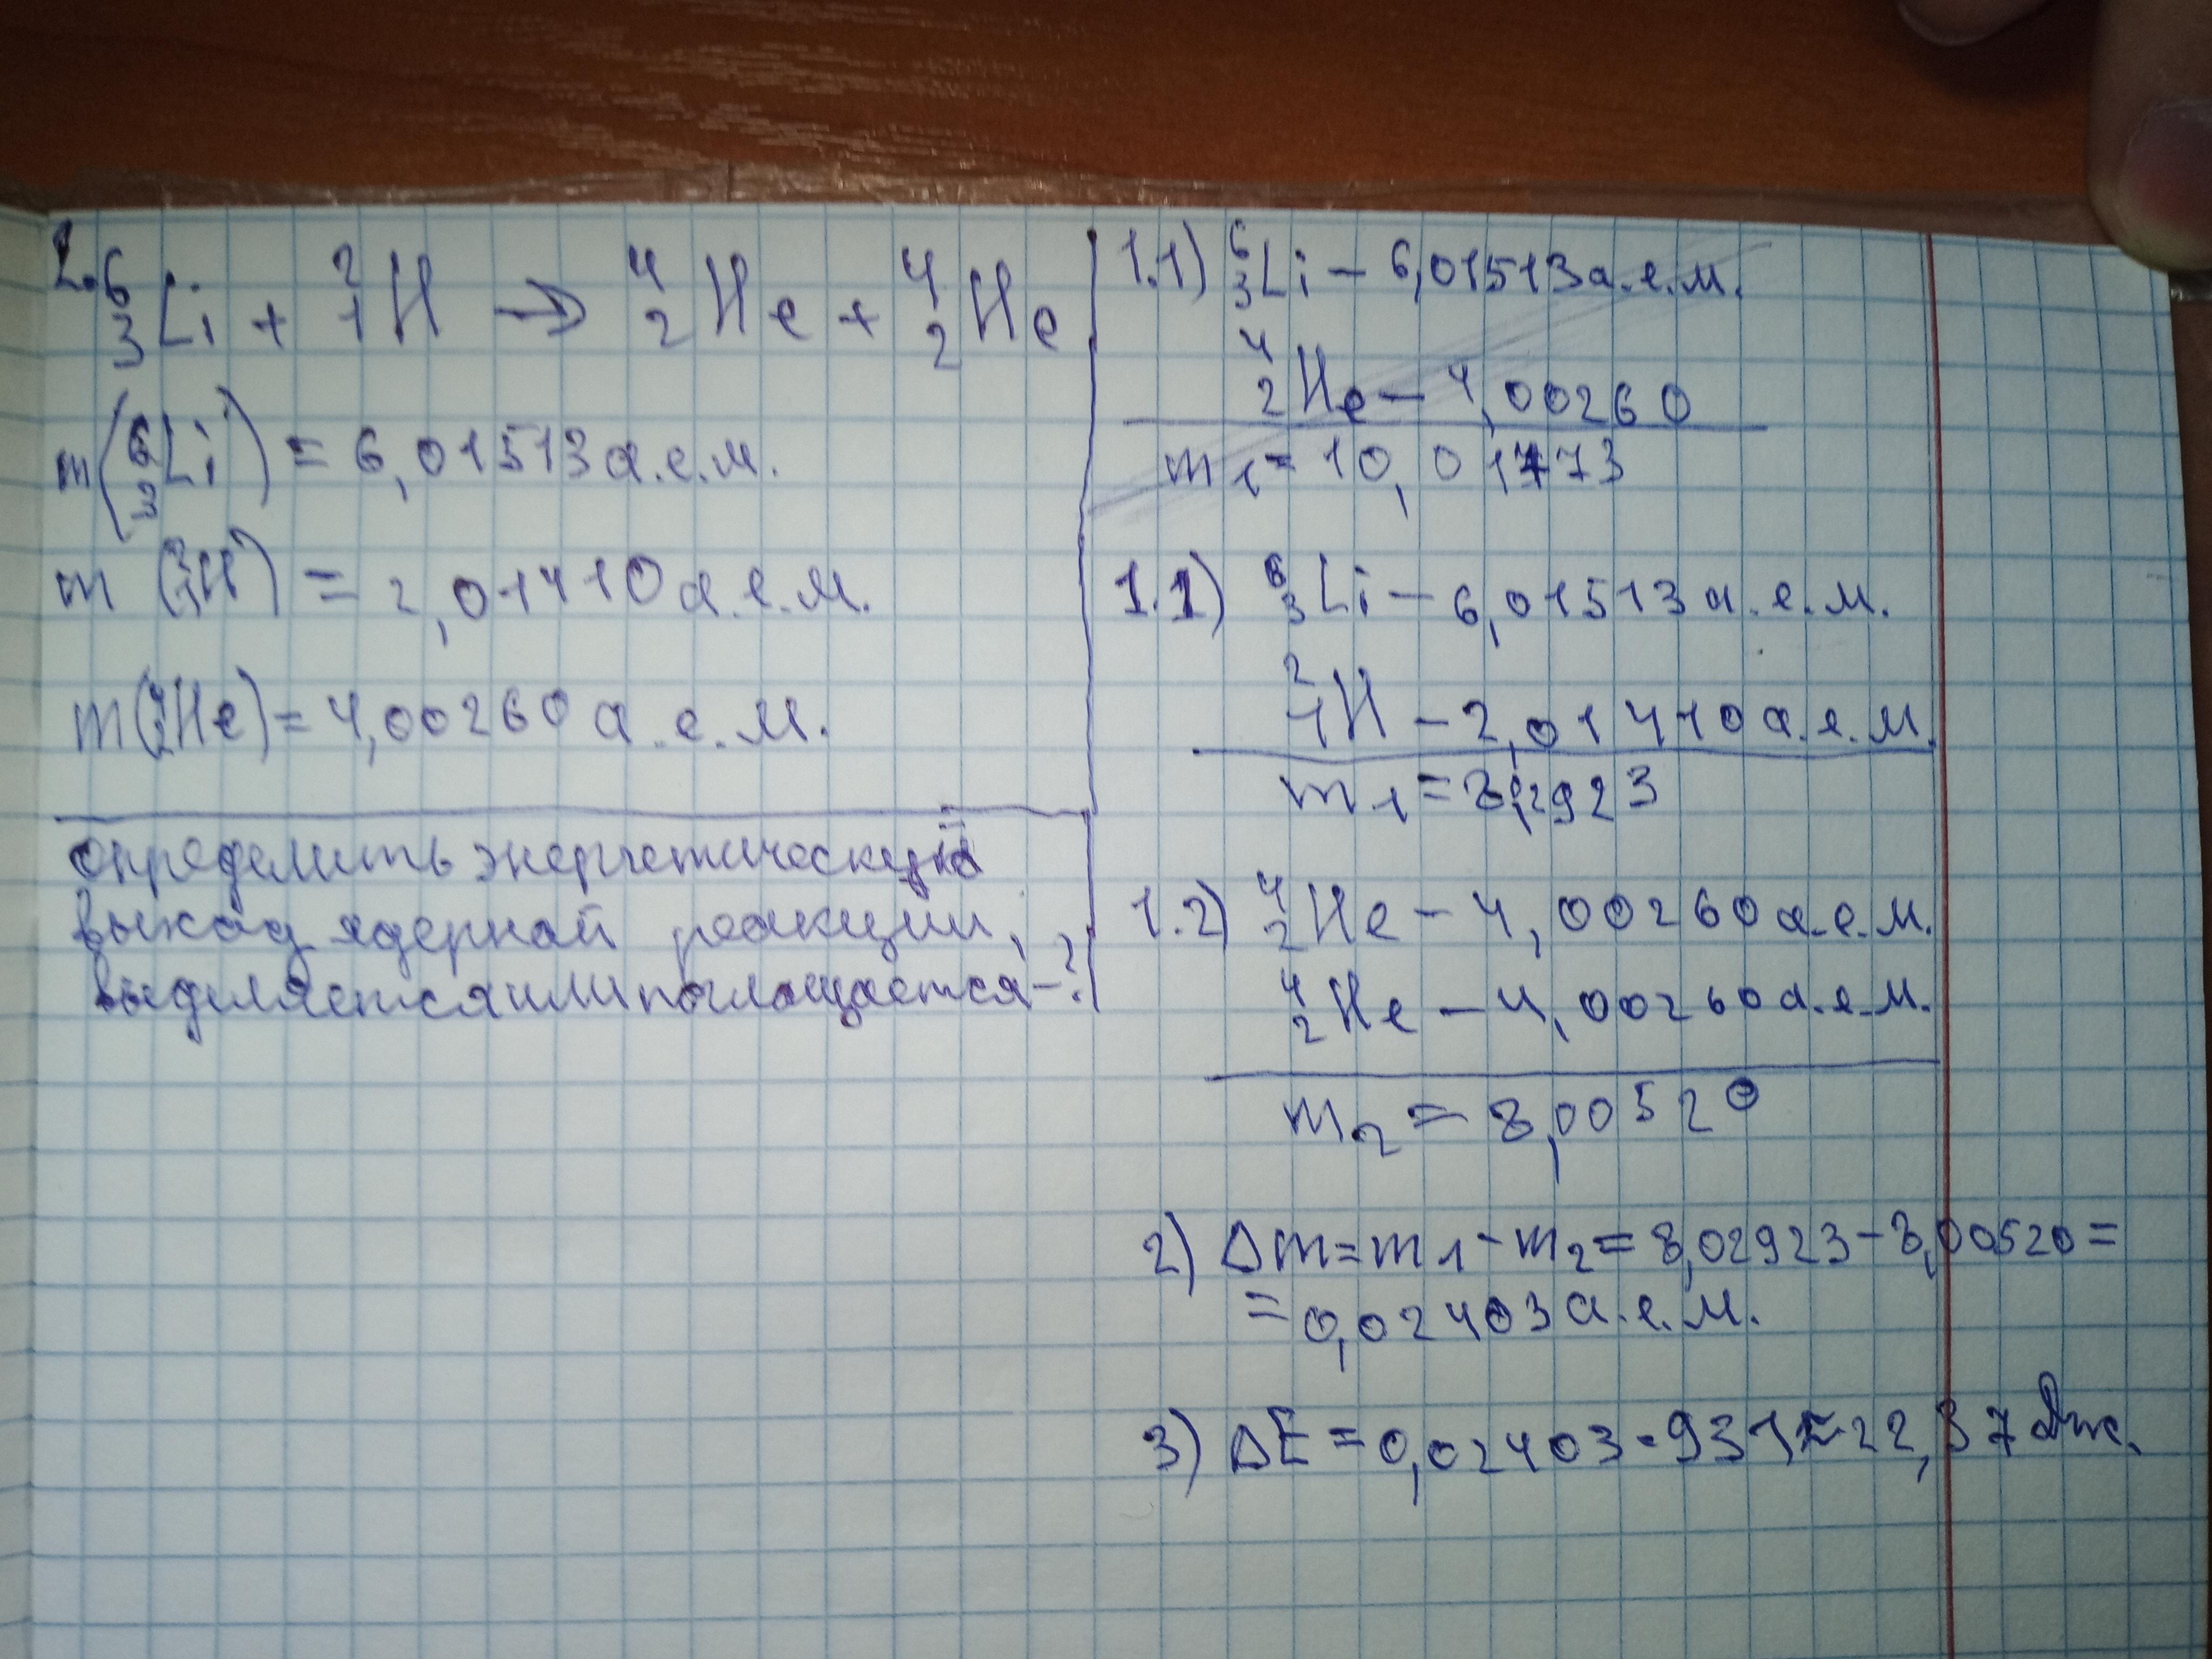 1. ⁶₃Li + ²₁H → ⁴₂He + ⁴₂He
m(⁶₃Li) = 6,01513 а.е.м.
m(²₁H) = 2,01410 а.е.м.
m(⁴₂He) = 4,00260 а.е.м.
определить энергетический
выход ядерной реакции,
выделяется или поглощается-?
1.1) ⁶₃Li – 6,01513 а.е.м.
⁴₂He – 4,00260
m₁ = 10,01773
1.1) ⁶₃Li – 6,01513 а.е.м.
²₁H – 2,01410 а.е.м.
m₁ = 8,2923
1.2) ⁴₂He – 4,00260 а.е.м.
⁴₂He – 4,00260 а.е.м.
m₂ = 8,00520
2) Δm = m₁ - m₂ = 8,02923 - 8,00520 =
= 0,02403 а.е.м.
3) ΔE = 0,02403 · 931 ≈ 22,37 Дж.